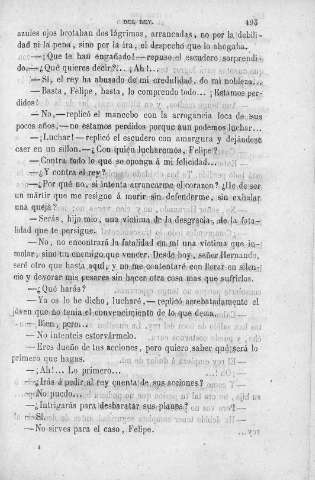 DEL REY. 493
azules ojos brotaban dos lágrimas, arrancadas, no por la debili-
dad ni la pena, sino por la ira, el despecho que lo ahogaba.
—¿Que te han engañado!—repuso el escudero sorprendi-
do,—¿Qué quieres decir?!... ¡Ah!...
—Sí, el rey ha abusado de mi credulidad, de mi nobleza...
—Basta, Felipe, basta, lo comprendo todo... ¡Estamos per-
didos!
—No,—replicó el mancebo con la arrogancia loca de sus
pocos años,—no estamos perdidos porque aun podemos luchar...
—¡Luchar!—replicó el escudero con amargura y dejándose
caer en un sillon.—¿Con quién lucharemos, Felipe?
—Contra todo lo que se oponga á mi felicidad...
—¿Y contra el rey?
—¿Por qué no, si intenta arrancarme el corazon? ¿He de ser
un mártir que me resigne á morir sin defenderme, sin exhalar
una queja?
—Serás, hijo mio, una víctima de la desgracia, de la fata-
lidad que te persigue.
—No, no encontrará la fatalidad en mí una víctima que in-
molar, sino un enemigo que vencer. Desde hoy, señor Hernando,
seré otro que hasta aquí, y no me contentaré con llorar en silen-
cio y devorar mis pesares sin hacer otra cosa mas que sufrirlos.
—¿Qué harás?
—Ya os lo he dicho, lucharé,—replicó arrebatadamente el
jóven que no tenia el convencimiento de lo que decia.
—Bien, pero...
—No intenteis estorvármelo.
—Eres dueño de tus acciones, pero quiero saber qué será lo
primero que hagas.
—¡Ah!... Lo primero...
—¿Irás á pedir al rey cuenta de sus acciones?
—No puedo...
—¿Intrigarás para desbaratar sus planes?
—Sí.
—No sirves para el caso, Felipe.